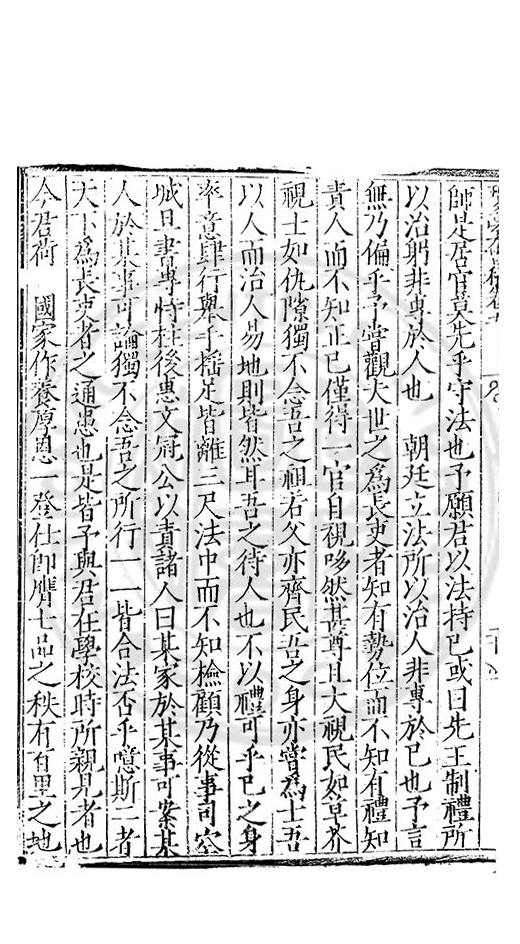 師是居官莫先乎守法也予願君以法持已或曰先王制禮所
以治躬非專於人也　朝廷立法所以治人非專於已也予言
無乃偏乎予嘗觀夫世之為長吏者知有勢位而不知有禮知
責人而不知正已僅得一官自視哆然甚尊且大視民如草芥
視士如仇隙獨不念吾之祖若父亦齊民吾之身亦嘗為士吾
以人而治人易地則皆然耳吾之待人也不以禮可乎已之身
率意肆行舉手搖足皆離三尺法中而不知檢顧乃從事司空
城旦書專恃柱後惠文冠公以責諸人曰某家於某事可案某
人於某事可論獨不念吾之所行一一皆合法否乎噫斯二者
天下為長吏者之通患也是皆予與君在學校時所親見者也
今君荷　國家作養厚恩一登仕即膺七品之秩有百里之地